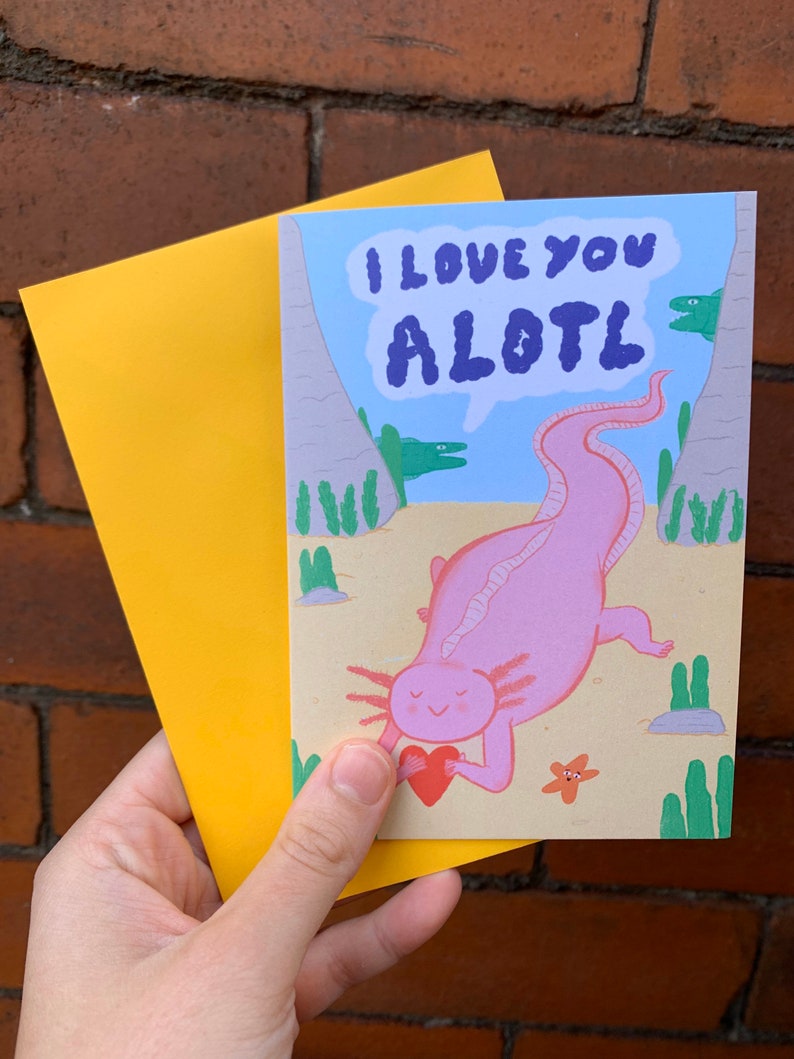 I LOVE YOU
ALOTL